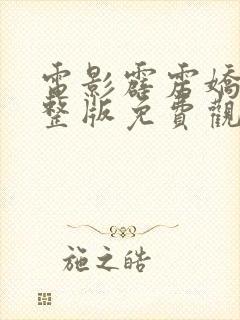 電影霹雷嬌
整版免費觀
施之皓